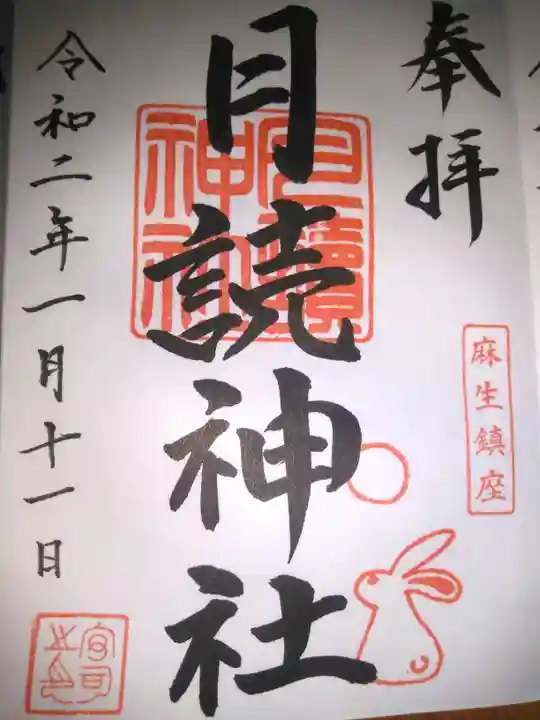 奉拝
麻生鎮座
月読神社
月讀神社
令和二年一月十一日
宮司之印